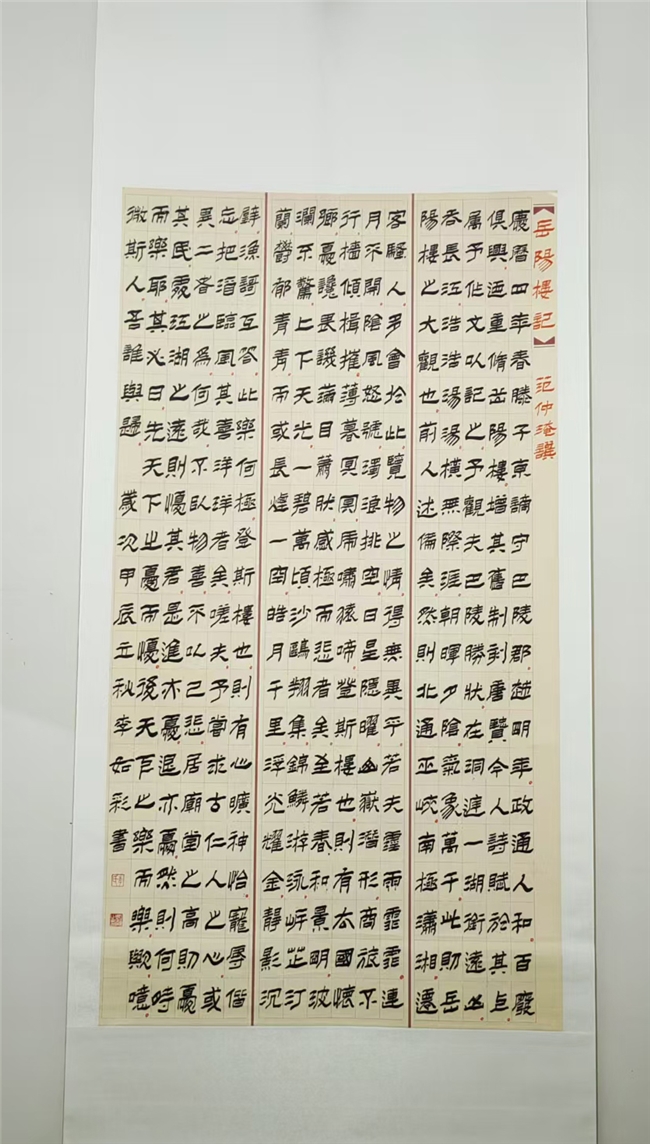 【岳陽樓記】 范仲淹譔
慶曆四年春滕子京謫守巴陵郡越明年政通人和百廢
俱興迺重脩岳陽樓增其舊制刻唐賢今人詩賦於其上
属予作文以記之予觀夫巴陵勝狀在洞庭一湖銜遠山
吞長江浩浩湯湯橫無際涯朝暉夕陰氣象萬千此則岳
陽樓之大觀也前人述備矣然則北通巫峽南極瀟湘遷
客騷人多會於此覽物之情得無異乎若夫霪雨霏霏連
月不開陰風怒號濁浪排空日星隱曜山嶽潛形商旅不
行檣傾楫摧薄暮冥冥虎嘯猿啼登斯樓也則有去國懷
鄉憂讒畏譏滿目蕭然感極而悲者矣至若春和景明波
瀾不驚上下天光一碧萬頃沙鷗翔集錦鱗游泳岸芷汀
蘭鬱郁青青而或長煙一空皓月千里浮光耀金靜影沉
璧漁謌互答此樂何極登斯樓也則有心曠神怡寵辱偕
忘把酒臨風其喜洋洋者矣嗟夫予嘗求古仁人之心或
異二者之為何哉不以物喜不以己悲居廟堂之高則憂
其民處江湖之遠則憂其君是進亦憂退亦憂然則何時
而樂耶其必曰先天下之憂而憂後天下之樂而樂歟噫
微斯人吾誰與歸 歲次甲辰立秋李如彩書